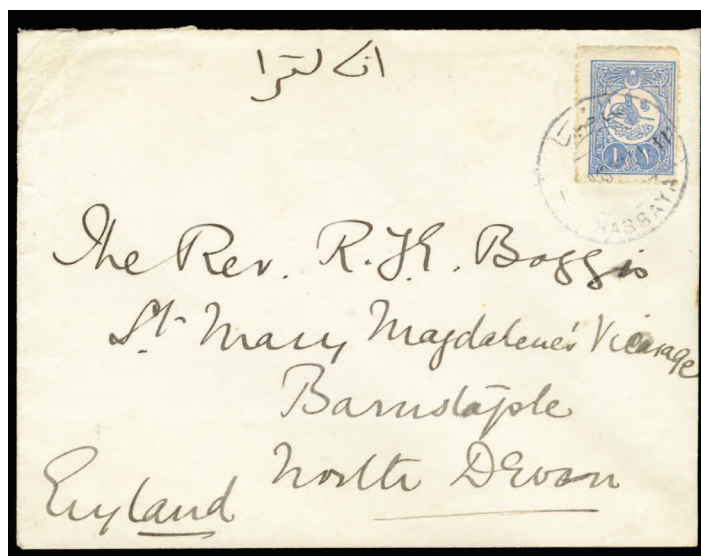 انكلترا
HASBAYA
The Rev. R. J. E. Boggis
St Mary Magdalene's Vicarage
Barnstaple
North Devon
England